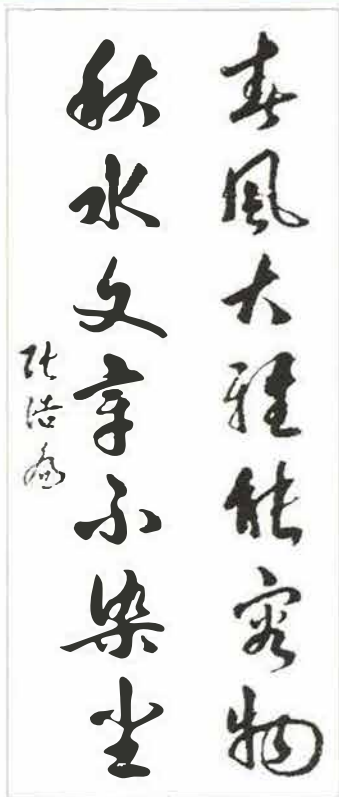 春风大雅能容物
秋水文章不染尘
张浩